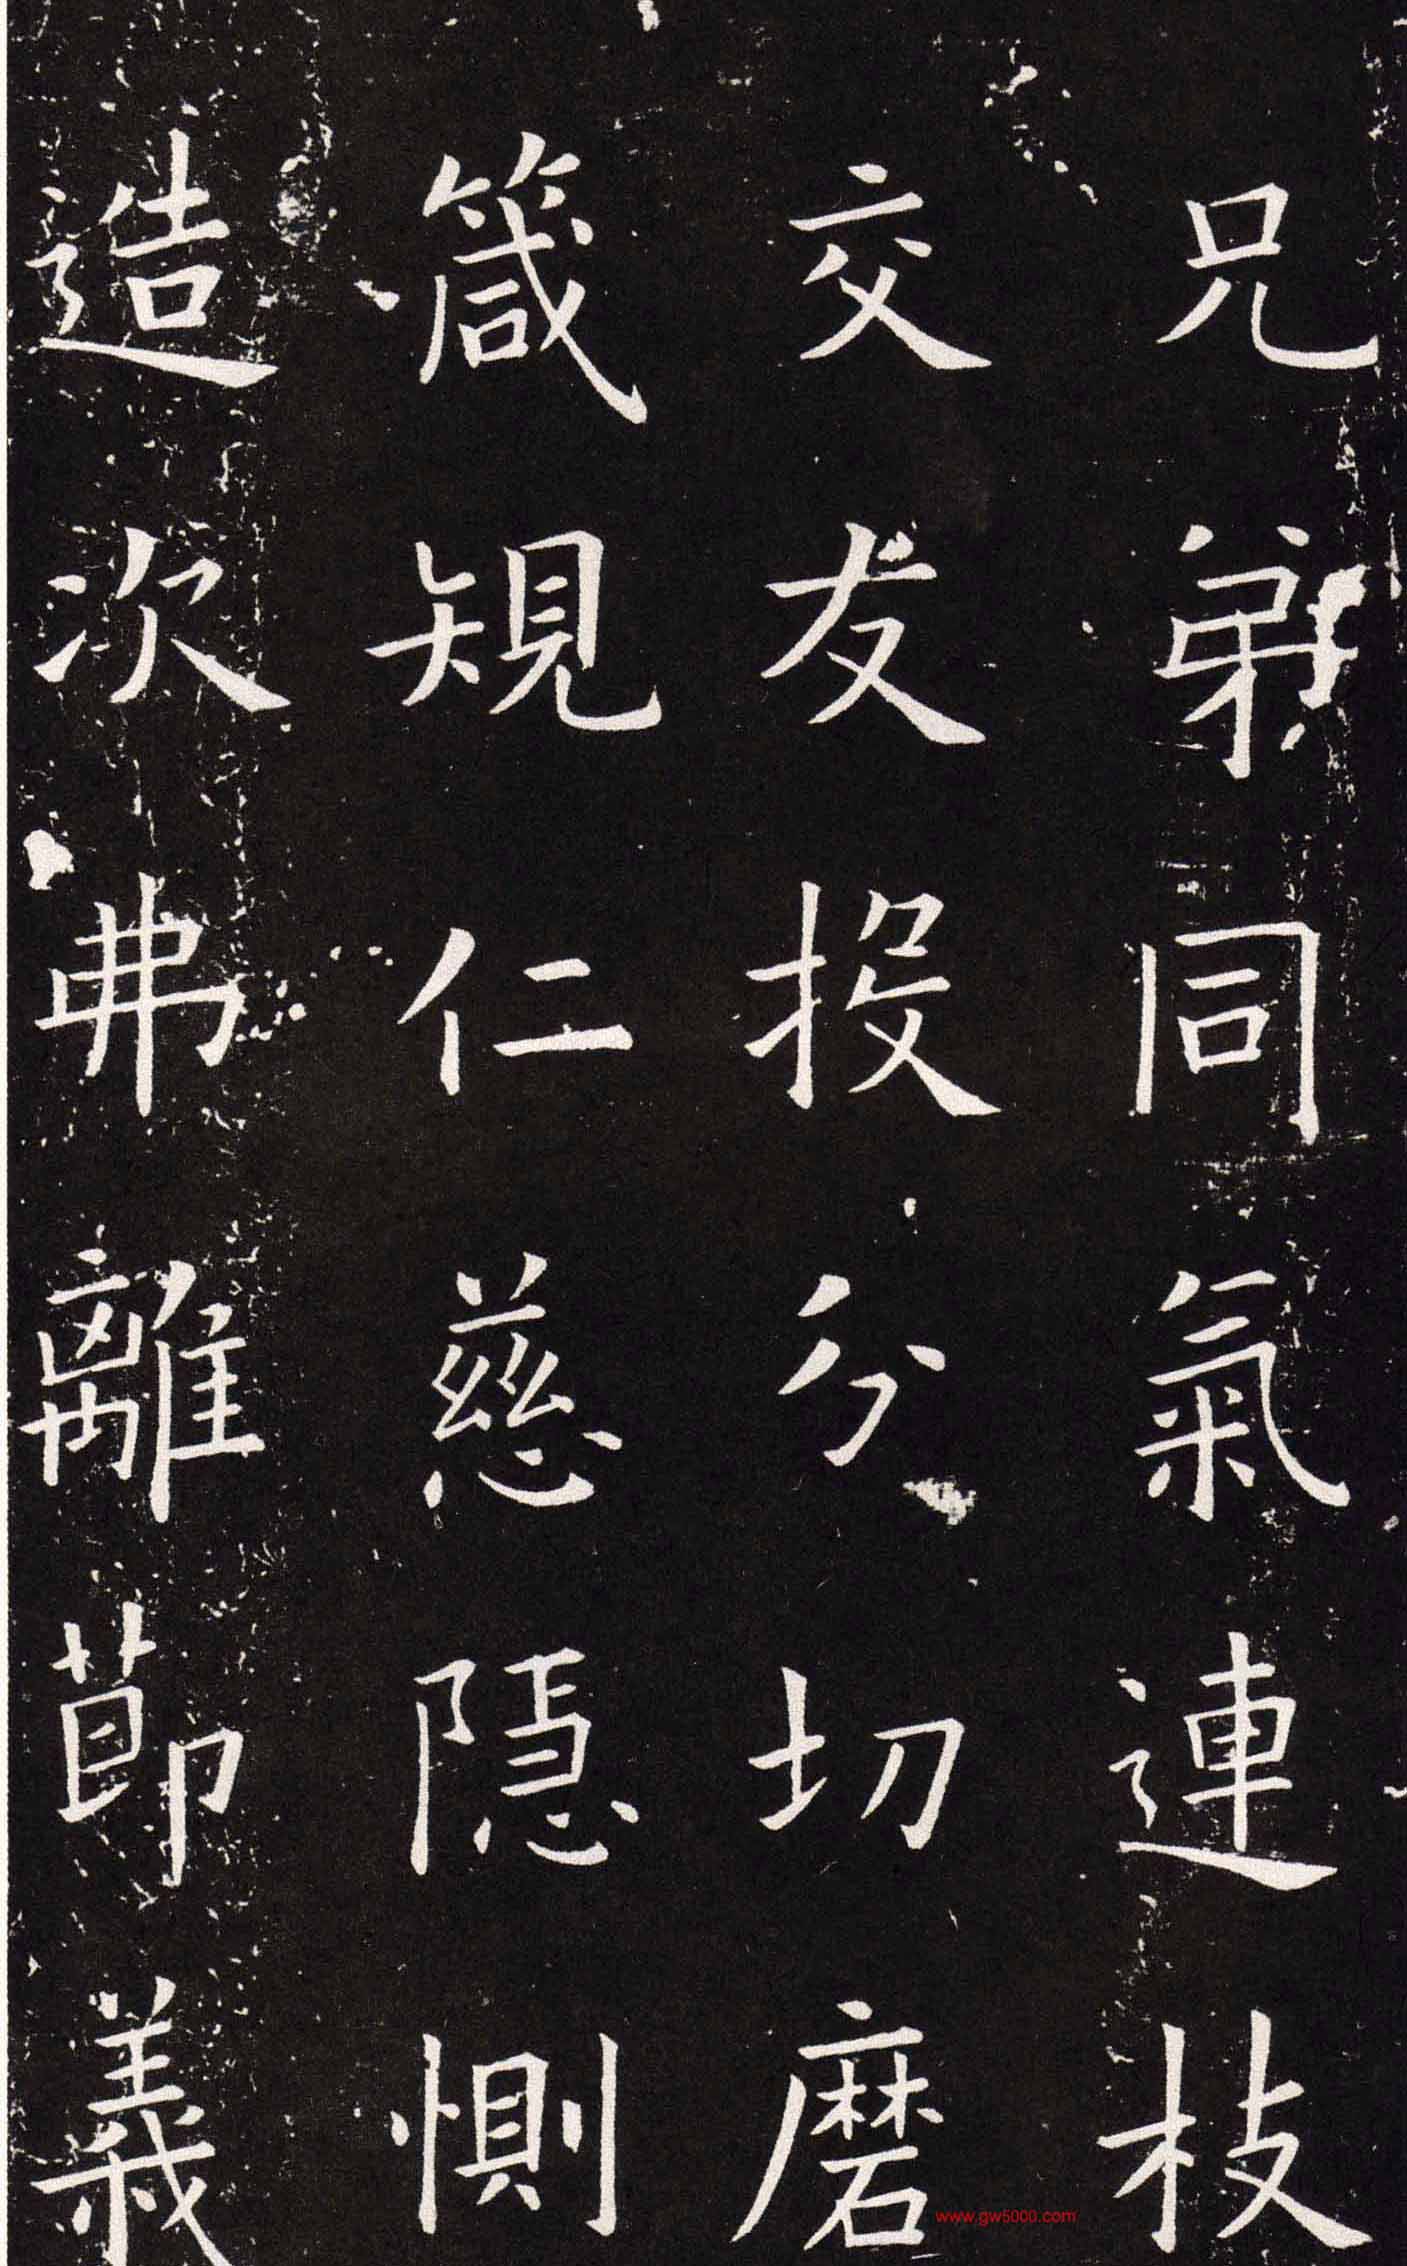 兄弟同氣連枝
交友投分切磨
箴規仁慈隱惻
造次弗離節義
www.gw5000.com